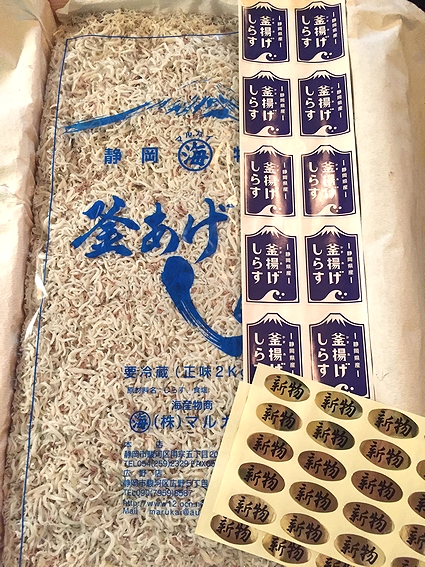 マルカイ
静岡 海
釜あげ
し
要冷蔵（正味2K
原材料名：しらす、食塩
海産物商
海 (株)マルカ
本 店
静岡市駿河区用宗五丁目20
TEL054(259)2329 FAX05
広 野 店
静岡市駿河区広野三丁目
TEL090(7959)8587
http://www12.ocn
Mail marukai@au
釜揚げしらす
静岡県産
釜揚げしらす
静岡県産
釜揚げしらす
静岡県産
釜揚げしらす
静岡県産
釜揚げしらす
静岡県産
釜揚げしらす
静岡県産
釜揚げしらす
静岡県産
釜揚げしらす
静岡県産
釜揚げしらす
静岡県産
釜揚げしらす
静岡県産
新物 新物 新物
新物 新物 新物
新物 新物 新物
新物 新物 新物
新物 新物 新物